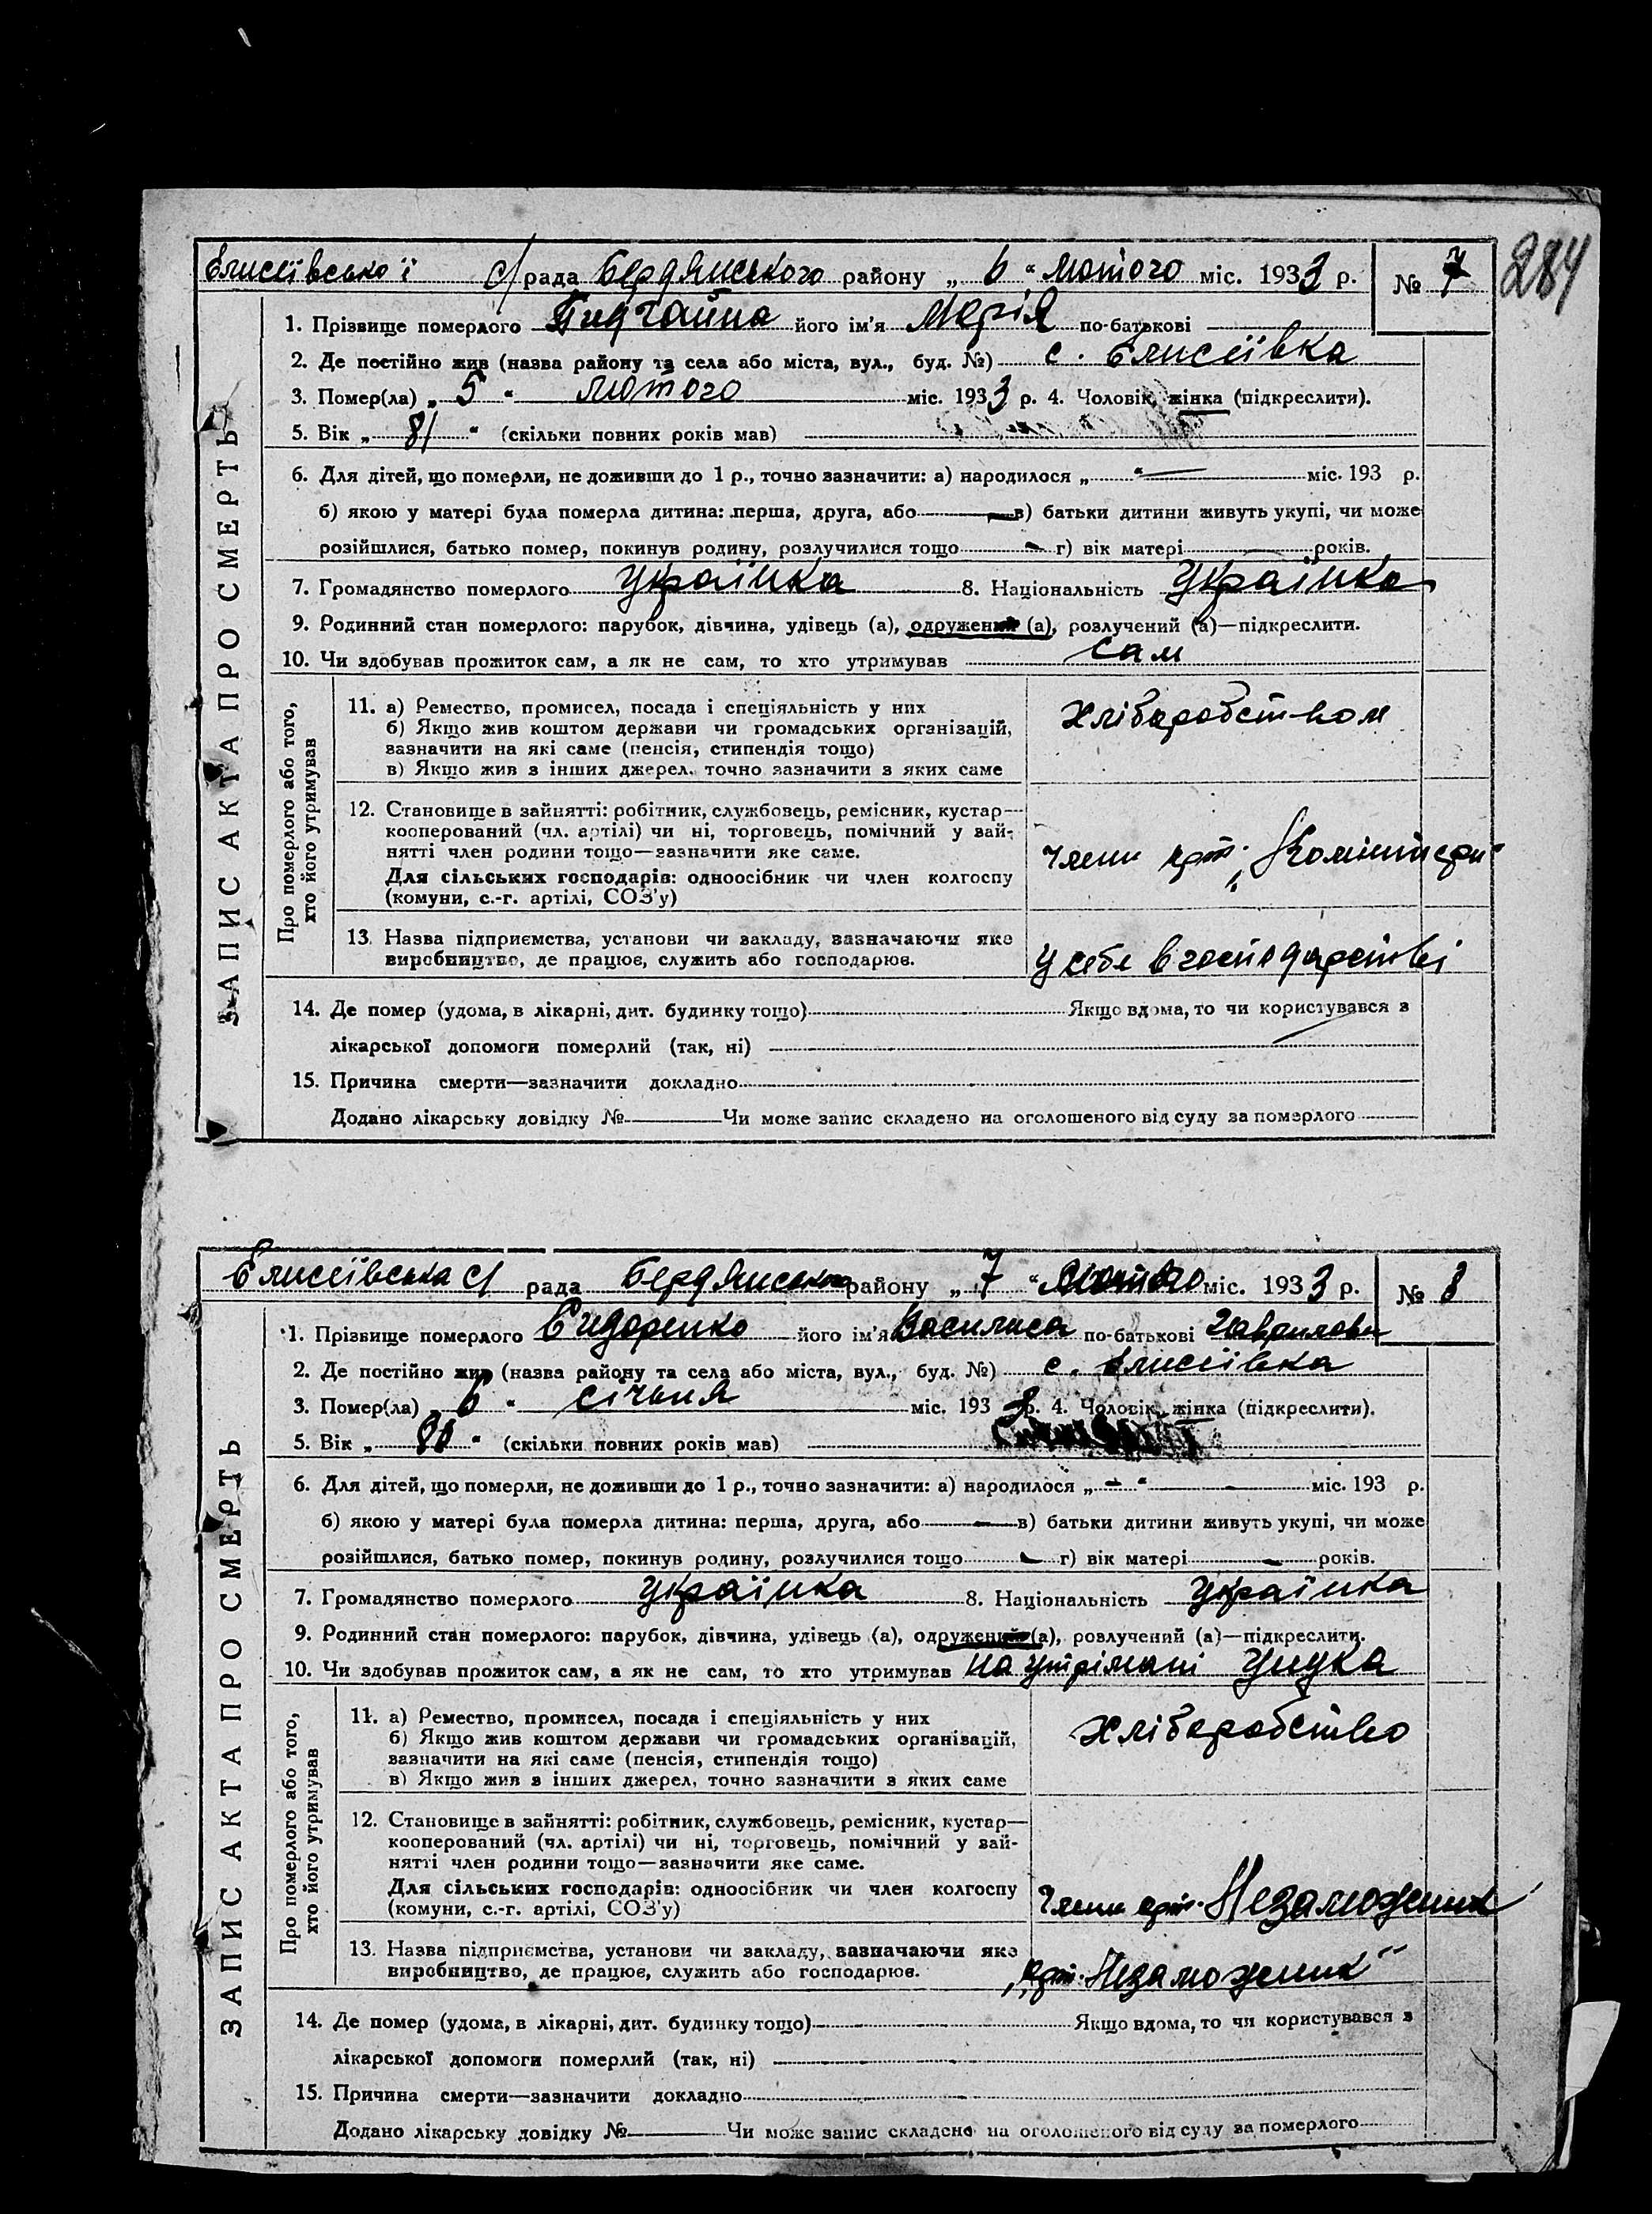 284
Єлисєївської с/рада Бердянського району „ 6 “ лютого міс. 1933 р. № 7
ЗАПИС АКТА ПРО СМЕРТЬ
1. Прізвище померлого його ім'я Марія по-батькові
2. Де постійно жив (назва району та села або міста, вул., буд. №) с. Єлисєївка
3. Помер(ла) „ 5 “ лютого міс. 1933 р. 4. Чоловік, жінка (підкреслити).
5. Вік „ 81 “ (скільки повних років мав)
6. Для дітей, що померли, не доживши до 1 р., точно зазначити: а) народилося „ “ міс. 193 р.
б) якою у матері була померла дитина: перша, друга, або в) батьки дитини живуть укупі, чи може
розійшлися, батько помер, покинув родину, розлучилися тощо г) вік матері років.
7. Громадянство померлого Українка 8. Національність Українка
9. Родинний стан померлого: парубок, дівчина, удівець (а), одружений (а), розлучений (а)—підкреслити.
10. Чи здобував прожиток сам, а як не сам, то хто утримував сам
Про померлого або того,
хто його утримував
11. а) Ремество, промисел, посада і спеціяльність у них
б) Якщо жив коштом держави чи громадських організацій,
зазначити на які саме (пенсія, стипендія тощо)
в) Якщо жив з інших джерел, точно зазначити з яких саме
Хліборобством
12. Становище в зайнятті: робітник, службовець, ремісник, кустар—
кооперований (чл. артілі) чи ні, торговець, помічний у зай-
нятті член родини тощо—зазначити яке саме.
Для сільських господарів: одноосібник чи член колгоспу
(комуни, с.-г. артілі, СОЗ'у)
член арт. „Комінтерн“
13. Назва підприємства, установи чи закладу, зазначаючи яке
виробництво, де працює, служить або господарює.
У себе в господарстві
14. Де помер (удома, в лікарні, дит. будинку тощо) Якщо вдома, то чи користувався з
лікарської допомоги померлий (так, ні)
15. Причина смерти—зазначити докладно
Додано лікарську довідку № Чи може запис складено на оголошеного від суду за померлого
Єлисєївська с/ рада Бердянського району „ 7 “ Лютого міс. 1933 р. № 8
ЗАПИС АКТА ПРО СМЕРТЬ
1. Прізвище померлого Сидоренко його ім'я Василиса по-батькові Гавриловн
2. Де постійно жив (назва району та села або міста, вул., буд. №) с. Єлисєївка
3. Помер(ла) „ 6 “ січня міс. 1933 р. 4. Чоловік, жінка (підкреслити).
5. Вік „ “ (скільки повних років мав)
6. Для дітей, що померли, не доживши до 1 р., точно зазначити: а) народилося „ “ міс. 193 р.
б) якою у матері була померла дитина: перша, друга, або в) батьки дитини живуть укупі, чи може
розійшлися, батько помер, покинув родину, розлучилися тощо г) вік матері років.
7. Громадянство померлого Українка 8. Національність Українка
9. Родинний стан померлого: парубок, дівчина, удівець (а), одружений (а), розлучений (а)—підкреслити.
10. Чи здобував прожиток сам, а як не сам, то хто утримував на утрімані унука
Про померлого або того,
хто його утримував
11. а) Ремество, промисел, посада і спеціяльність у них
б) Якщо жив коштом держави чи громадських організацій,
зазначити на які саме (пенсія, стипендія тощо)
в) Якщо жив з інших джерел, точно зазначити з яких саме
Хліборобство
12. Становище в зайнятті: робітник, службовець, ремісник, кустар—
кооперований (чл. артілі) чи ні, торговець, помічний у зай-
нятті член родини тощо—зазначити яке саме.
Для сільських господарів: одноосібник чи член колгоспу
(комуни, с.-г. артілі, СОЗ'у)
член арт. Незаможник
13. Назва підприємства, установи чи закладу, зазначаючи яке
виробництво, де працює, служить або господарює.
„арт. Незаможник“
14. Де помер (удома, в лікарні, дит. будинку тощо) Якщо вдома, то чи користувався з
лікарської допомоги померлий (так, ні)
15. Причина смерти—зазначити докладно
Додано лікарську довідку № Чи може запис складено на оголошеного від суду за померлого